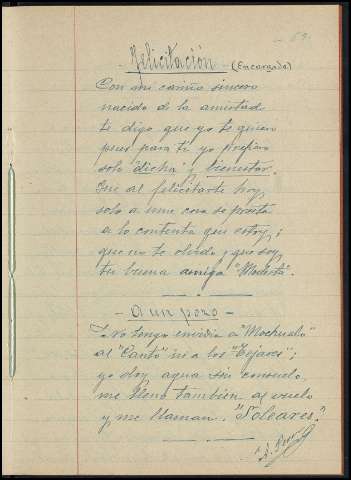 69.
- Felicitación - (Encargada)
Con mi cariño sincero
nacido de la amistad
te digo que yo te quiero
pues para ti yo prefiero
solo dicha y bienestar.
Que al felicitarte hoy,
solo a una cosa se presta
a lo contenta que estoy;
que no te olvido y que soy,
tu buena amiga "Modesta".
- A un pozo -
No tengo envidia a "Mochuelo"
al "Canto" ni a los "Tejares";
yo doy agua sin consuelo
me lleno también al vuelo
y me llaman. "Soleares"